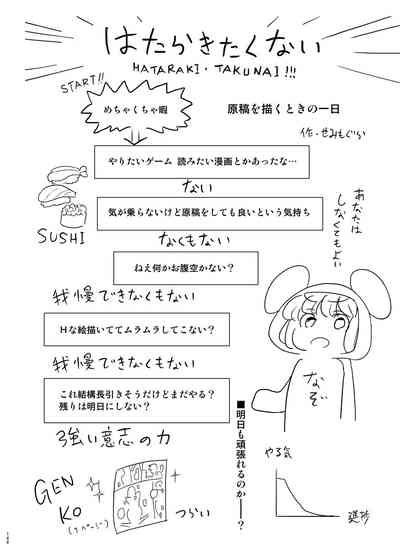 はたらきたくない
HATARAKI・TAKUNAI!!!
START!!
めちゃくちゃ暇
原稿を描くときの一日
作・せみもぐら
やりたいゲーム 読みたい漫画とかあったな…
ない
気が乗らないけど原稿をしても良いという気持ち
SUSHI
なくもない
あなたは
しなくてもよい
ねえ何かお腹空かない？
我慢できなくもない
Hな絵描いててムラムラしてこない？
我慢できなくもない
なぞ
これ結構長引きそうだけどまだやる？
残りは明日にしない？
強い意志の力
■明日も頑張れるのか――？
GEN
KO
つらい
やる気
進捗